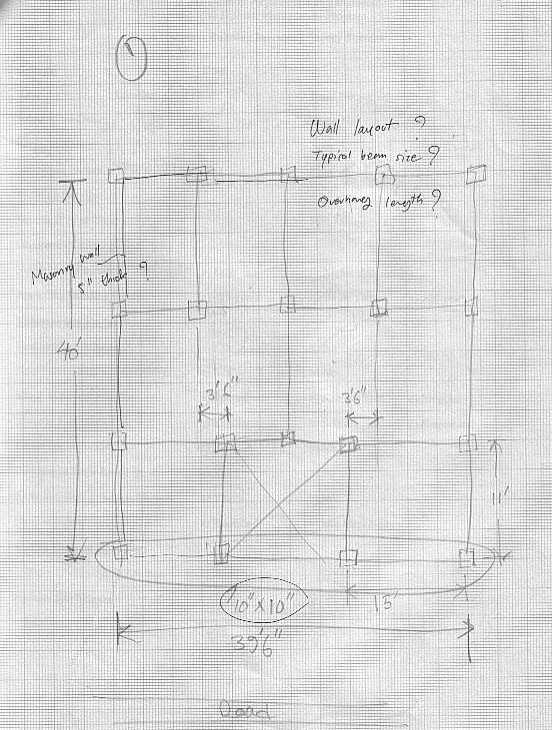 1
Wall layout ?
Typical beam size ?
Overhang length ?
Masonry wall
5" thick ?
40'
3'6"
3'6"
11'
10" x 10"
15'
39'6"
Road